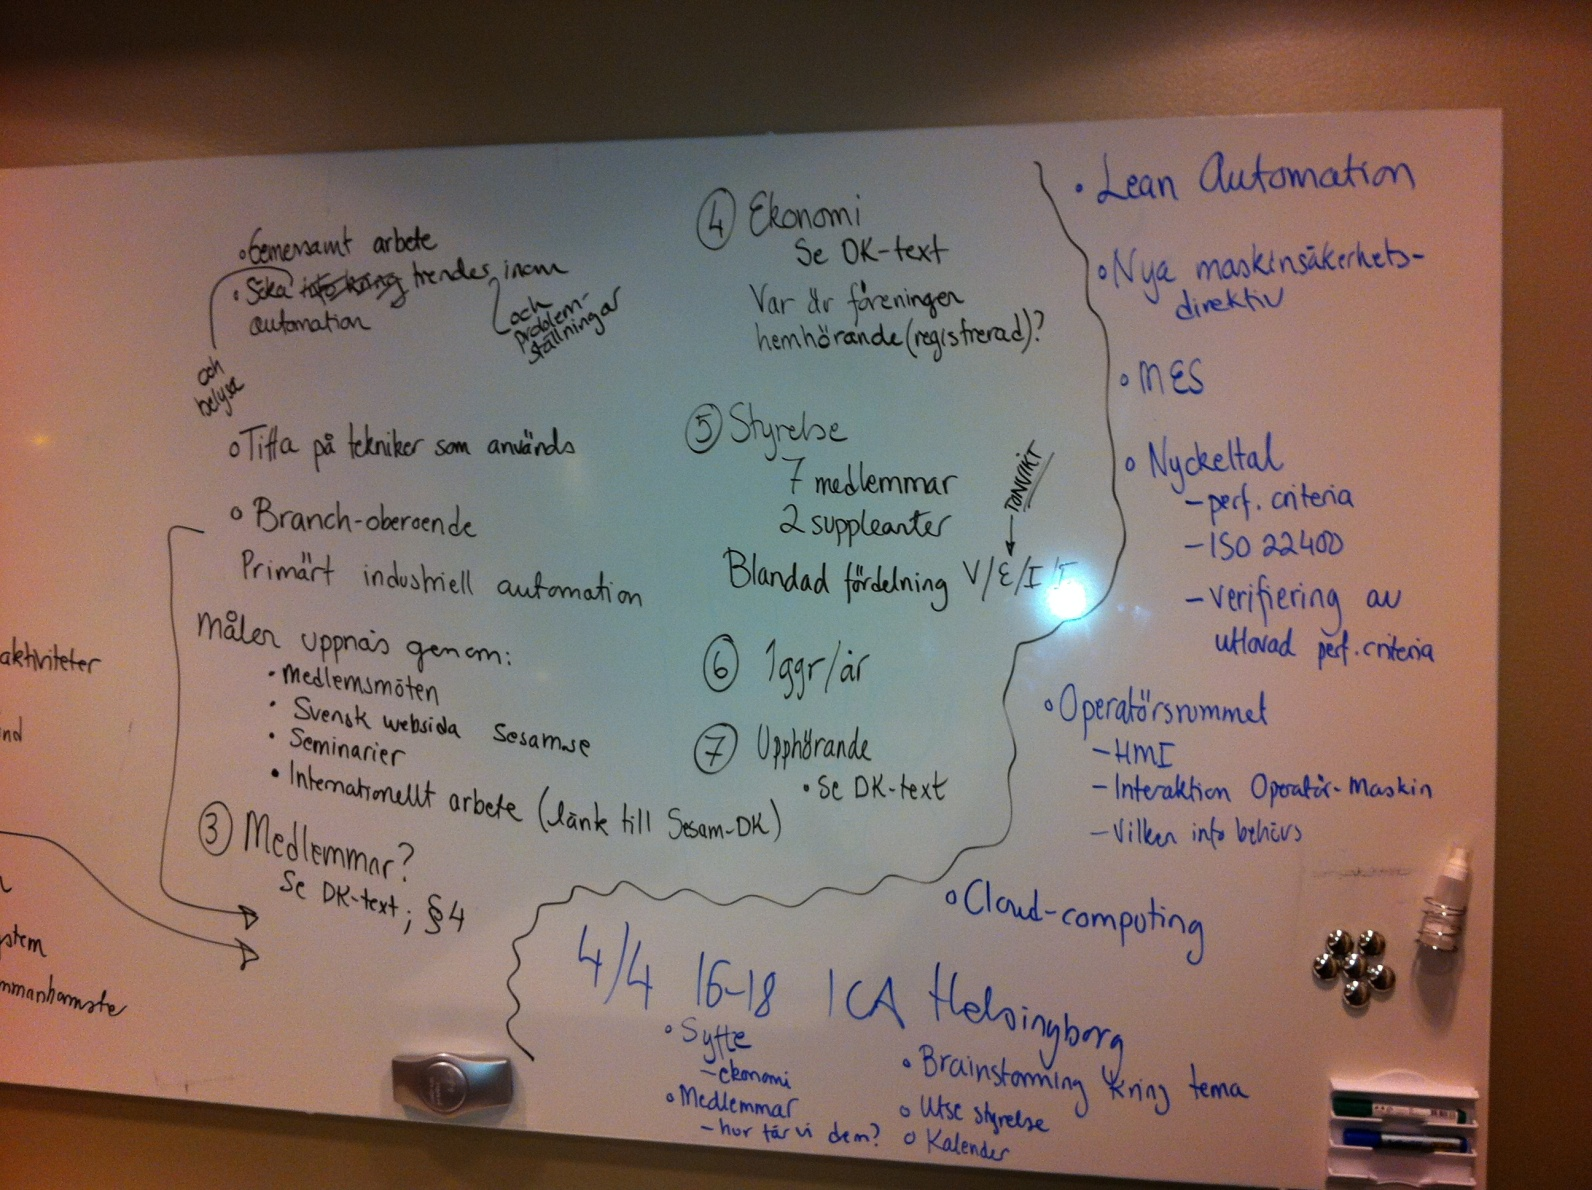 • Gemensamt arbete
• Söka info kring trender inom
automation
och
problem-
ställningar
och
belysa
• Titta på tekniker som används
• Branch-oberoende
Primärt industriell automation
Målen uppnås genom:
• Medlemsmöten
• Svensk websida Sesam.se
• Seminarier
• Internationellt arbete (länk till Sesam-DK)
③ Medlemmar?
Se DK-text; §4
aktiviteter
nd
stem
mmanhamste
④ Ekonomi
Se DK-text
Var är föreningen
hemhörande (registrerad)?
⑤ Styrelse
7 medlemmar
2 suppleanter
TONVIKT
Blandad fördelning V/E/I/I
⑥ 1ggr/år
⑦ Upphörande
• Se DK-text
• Lean Automation
• Nya maskinsäkerhets-
direktiv
• MES
• Nyckeltal
- perf. criteria
- ISO 22400
- Verifiering av
utlovad perf. criteria
• Operatörsrummet
- HMI
- Interaktion Operatör-Maskin
- Vilken info behövs
• Cloud-computing
4/4 16-18 ICA Helsingborg
• Syfte
- ekonomi
• Medlemmar
- hur får vi dem?
• Brainstorming kring tema
• Utse styrelse
• Kalender